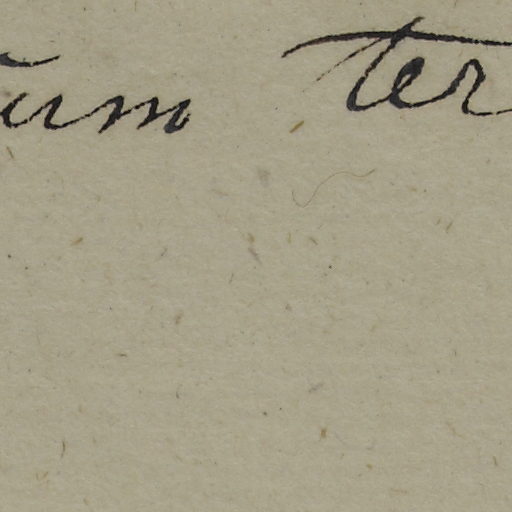 um ter